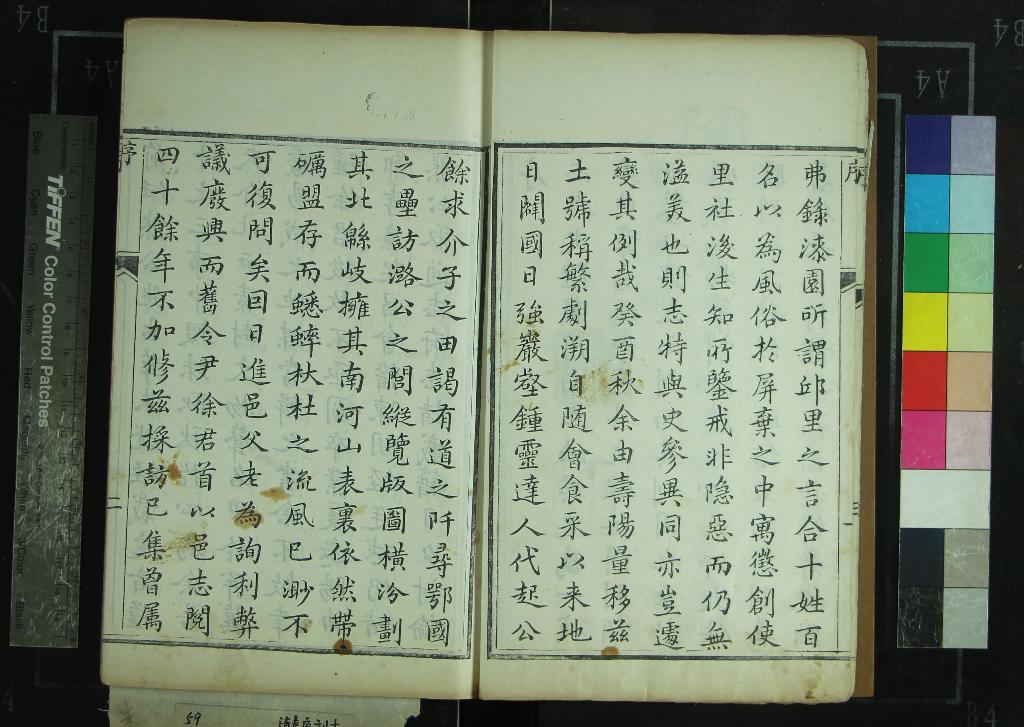 弗錄漆園所謂邱里之言合十姓百
名以為風俗於屏棄之中寓懲創使
里社後生知所鑒戒非隐惡而仍無
溢美也則志特與史參異同亦豈遽
變其例哉癸酉秋余由壽陽量移茲
土號稱繁劇溯自随會食采以来地
日闢國日強巖壑鍾靈達人代起公
餘求介子之田謁有道之阡尋鄂國
之壘訪潞公之閭縱覽版圖橫汾劃
其北緜岐擁其南河山表裏依然帶
礪盟存而蟋蟀杕杜之流風已渺不
可復問矣囙日進邑父老為詢利弊
議廢興而舊令尹徐君首以邑志閱
四十餘年不加修茲採訪已集曾属
序
二
序
TIFFEN Color Control Patches
Centimetres
Blue
Cyan
Green
Yellow
Red
Magenta
White
3/Color
Black
B4
A4
B4
A4
B4
59